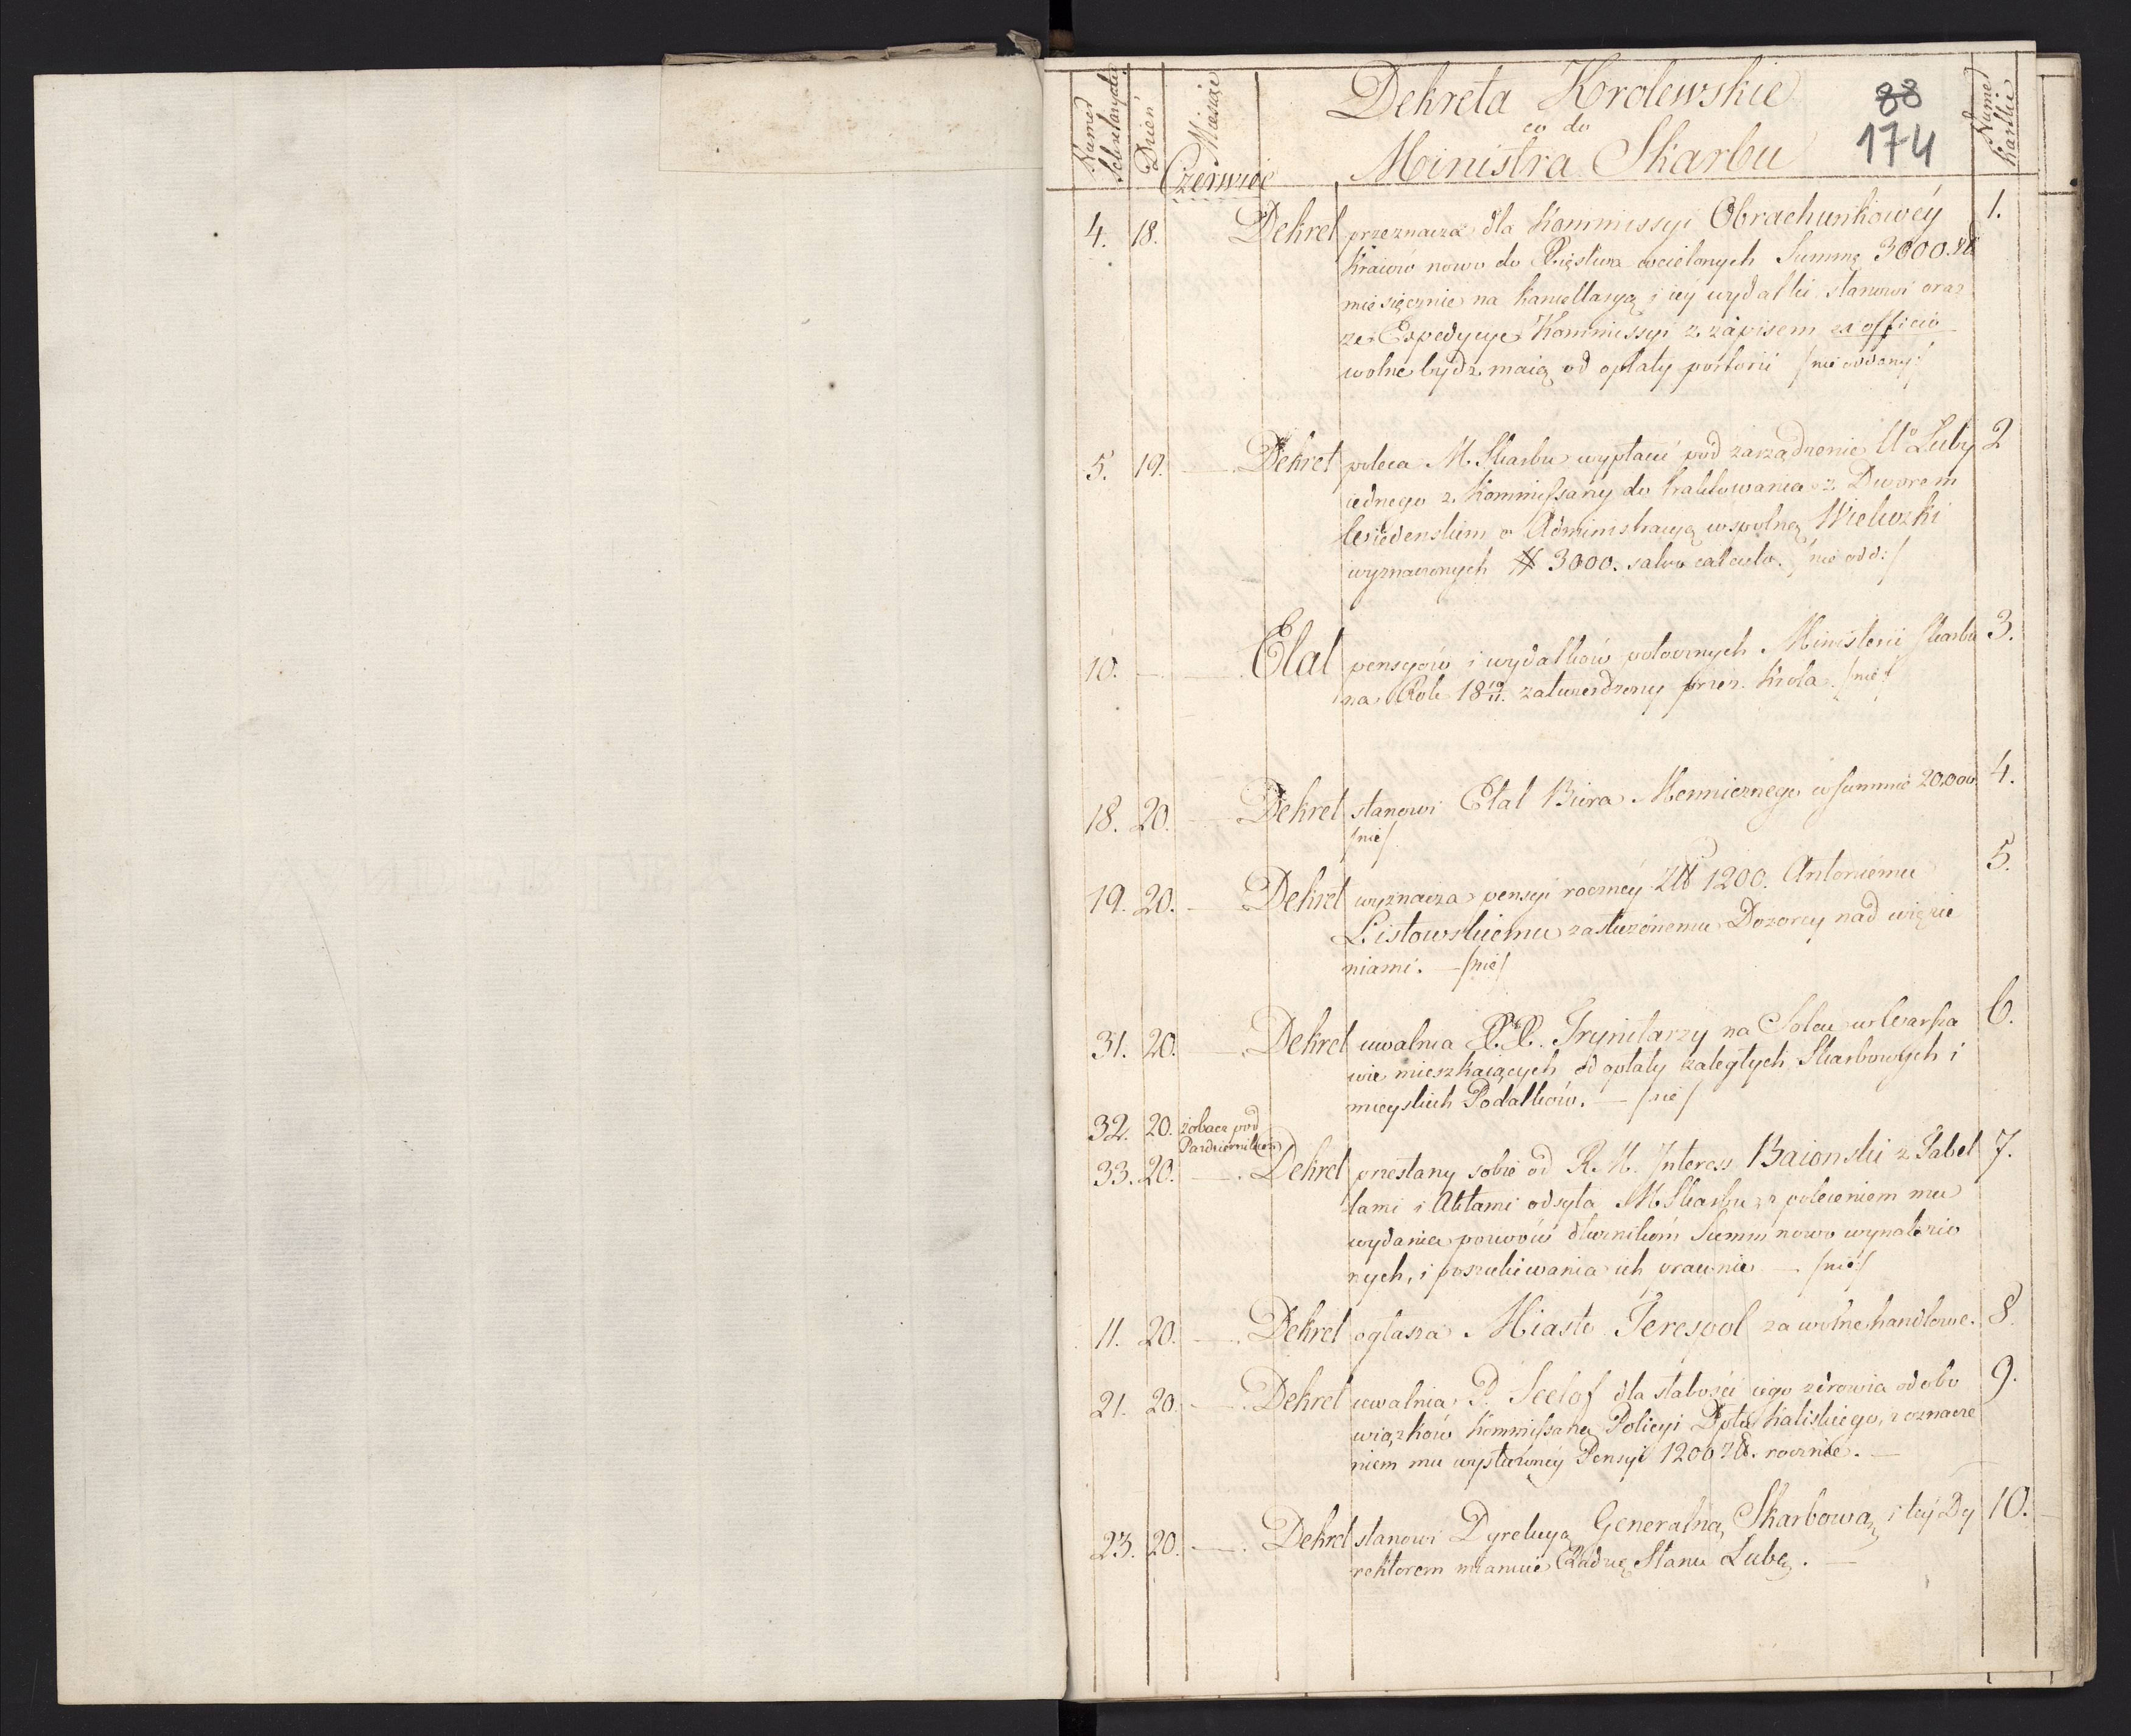 Numer Sekretaryatu
Dzień
Miesiąc
Dekreta Krolewskie
co do
Ministra Skarbu
88
174
Numer Kartki
Czerwiec
4. 18. Dekret przeznacza dla Kommissyi Obrachunkowéy 1.
Kraiow nowo do Xięstwa wcielonych Summę 3000. zł
miesięcznie na kancellaryą i iéy wydatki stanowi oraz
że Expedycye Kommissyi z zapisem ex officio
wolne bydź maią od opłaty portorii /nie oddany/
5. 19. — Dekret poleca M. Skarbu wypłacić pod zarządzenie Uo Luby 2
iednego z Kommissarzy do traktowania z Dworem
Wiedenskim o Administracyą wspolną Wieliczki
wyznaczonych # 3000. salvo calculo. /nie odd:/
10. — — Etat pensyów i wydatków potocznych Ministerii Skarbu 3.
na Rok 18 10/11. zatwierdzony przez Krola. /nie/
18. 20. — Dekret stanowi Etat Biora Menniczego w summie 20,000 4.
/nie/
19. 20. — Dekret wyznacza pensyi rocznéy Zł 1200. Antoniemu 5.
Listowskiemu zasłużonemu Dozorcy nad więzie
niami. — /nie/
31. 20. — Dekret uwalnia X.X. Trynitarzy na Solcu w Warsza 6.
wie mieszkaiących od opłaty zaległych Skarbowych i
mieyskich Podatków. — /nie/
32. 20. zobacz pod
Pazdziernikiem
33. 20. — Dekret przesłany sobie od R.M. Interess Baionski z Tabel 7.
lami i Aktami odsyła M Skarbu z poleceniem mu
wydania pozwów dłużnikom Summ nowo wynalezio
nych, i poszukiwania ich prawnie — /nie/
11. 20. — Dekret ogłasza Miasto Terespol za wolne handlowe. 8.
21. 20. — Dekret uwalnia P. Seelof dla słabości iego zdrowia od obo 9.
wiązków Kommissarza Policyi Dptu Kaliskiego, z oznacze
niem mu wysłużonéy Pensyi 1200 zł. rocznie. —
23. 20. — Dekret stanowi Dyrekcyą Generalną Skarbową, i téy Dy 10.
rektorem mianuie Radcę Stanu Lubę. —